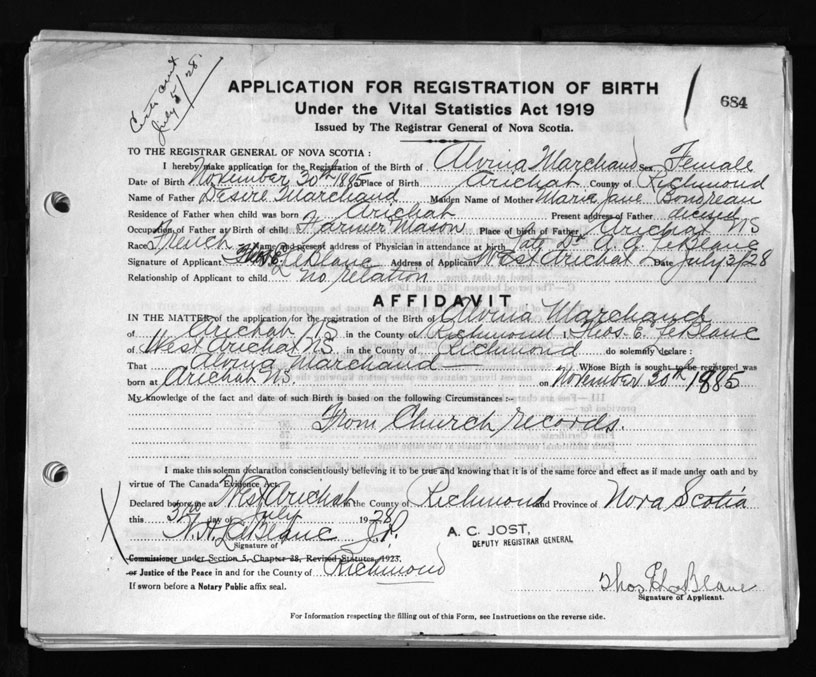 Certs sent
July 5/28.
APPLICATION FOR REGISTRATION OF BIRTH
684
Under the Vital Statistics Act 1919
Issued by The Registrar General of Nova Scotia.
TO THE REGISTRAR GENERAL OF NOVA SCOTIA :
I hereby make application for the Registration of the Birth of Alvina Marchand Sex Female
Date of Birth November 30th 1885 Place of Birth Arichat County of Richmond
Name of Father Desire Marchand Maiden Name of Mother Marie Jane Boudreau
Residence of Father when child was born Arichat Present address of Father decised
Occupation of Father at Birth of child Farmer Mason Place of birth of Father Arichat NS
Race French Name and present address of Physician in attendance at birth late Dr A. A. LeBlanc
Signature of Applicant Thos E LeBlanc Address of Applicant West Arichat Date July 3/28
Relationship of Applicant to child no relation
AFFIDAVIT
IN THE MATTER of the application for the registration of the Birth of Alvina Marchand
of Arichat NS in the County of Richmond I, Thos. E. LeBlanc
of West Arichat NS in the County of Richmond do solemnly declare :
That Alvina Marchand Whose Birth is sought to be registered was
born at Arichat NS. on November 30th 1885
My knowledge of the fact and date of such Birth is based on the following Circumstances :-
From Church records.
I make this solemn declaration conscientiously believing it to be true and knowing that it is of the same force and effect as if made under oath and by
virtue of The Canada Evidence Act.
Declared before me at West Arichat in the County of Richmond and Province of Nova Scotia
this 3rd day of July 1928
LeBlanc J.P.
A. C. JOST,
DEPUTY REGISTRAR GENERAL
Signature of
Commissioner under Section 5, Chapter 28, Revised Statutes, 1923.
or Justice of the Peace in and for the County of Richmond
If sworn before a Notary Public affix seal.
Thos E LeBlanc
Signature of Applicant.
For Information respecting the filling out of this Form, see Instructions on the reverse side.